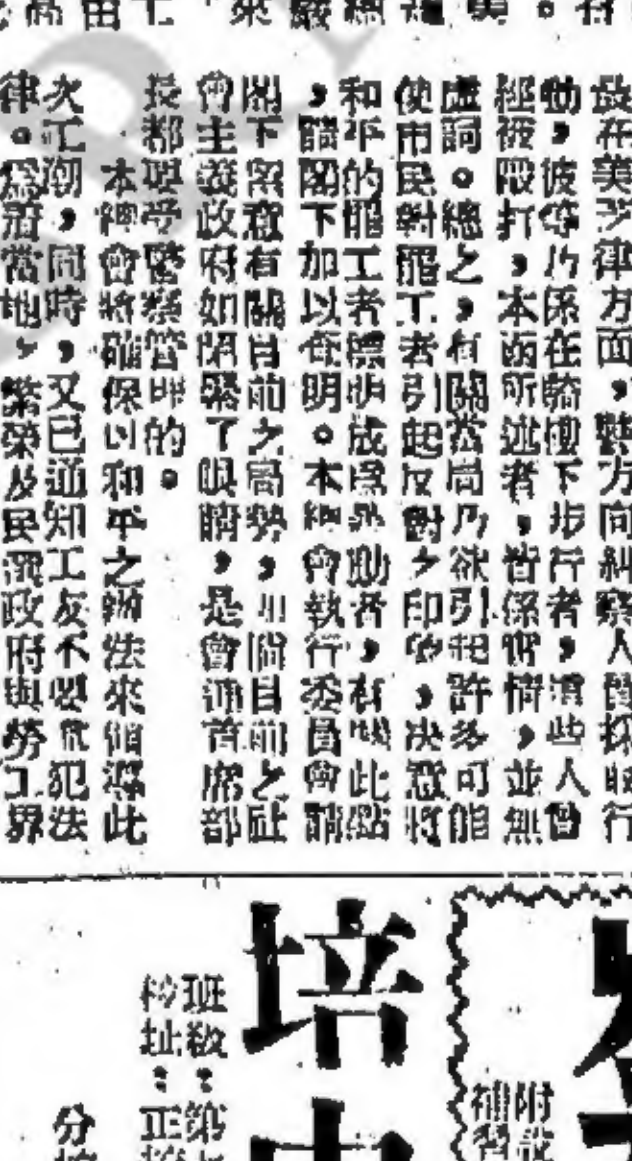 最在美芝律方面，警方向糾察人員採取行
動，彼等乃係在騎樓下步行者，這些人曾
經被毆打，本函所述者，皆係實情，並無
虛詞。總之，有關當局乃欲引起許多可能
使市民對罷工者引起反對之印象，決意將
和平的罷工者標明成為暴動者，有關此點
，請閣下加以查明。本總會執行委員會請
閣下留意有關目前之局勢，如個目前之社
會主義政府如閉緊了眼睛，是會連首席部
長都要受警察管制的。
本總會將確保以和平之辦法來領導此
次工潮，同時，又已通知工友不要觸犯法
律。為着當地之繁榮及民選政府與勞工界
培
班級：第
校址：正校
分校
附設
補習